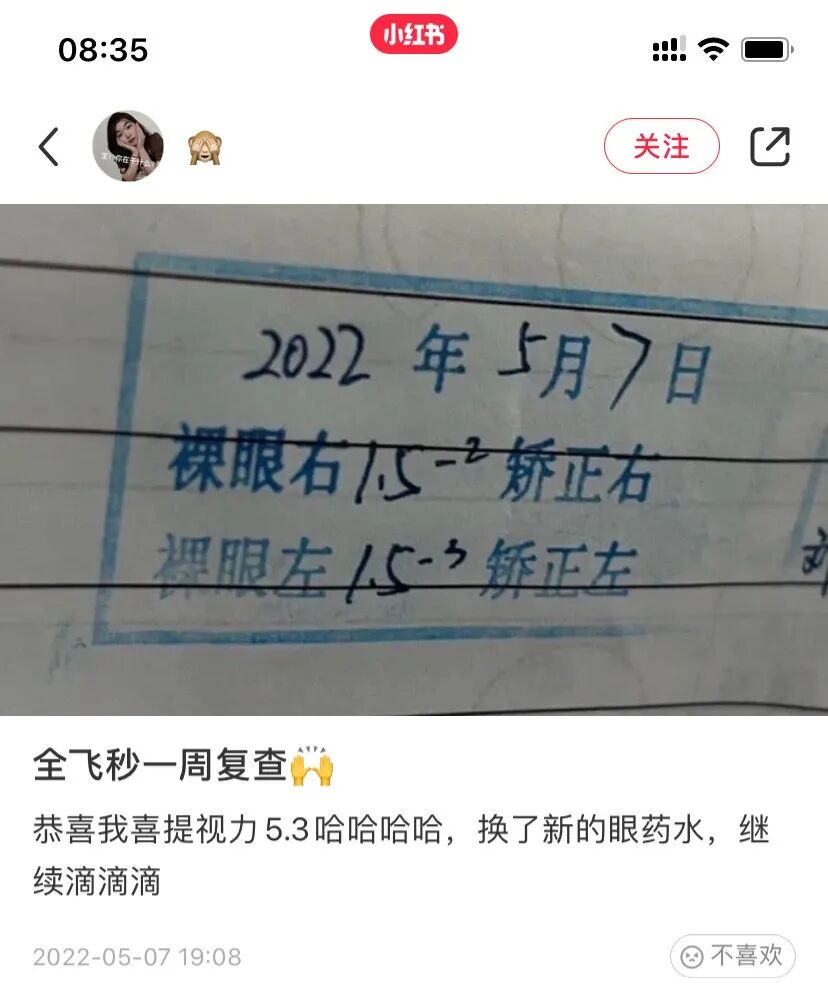 08:35
小红书
宝!你在干什么?
关注
2022 年 5月7日
裸眼右 1.5-2 矫正右
裸眼左 1.5-3 矫正左
全飞秒一周复查🙌
恭喜我喜提视力5.3哈哈哈哈，换了新的眼药水，继
续滴滴滴
2022-05-07 19:08
不喜欢